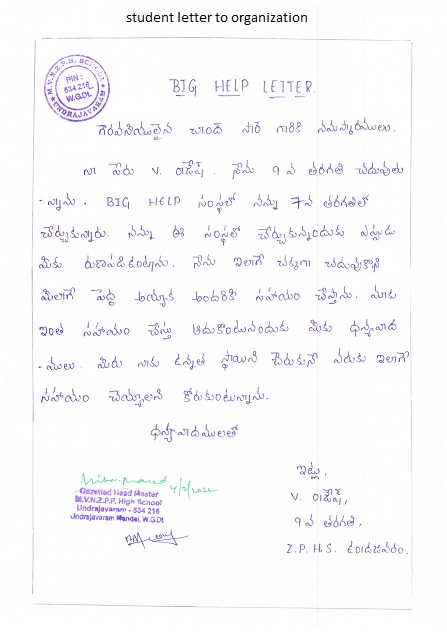 student letter to organization
M.V.N.Z.P.H. SCHOOL
PIN:
534 216
W.G.Dt.
UNDRAJAVARAM
BIG HELP LETTER.
గౌరవనీయులైన చాంద్ సార్ గారికి నమస్కారములు.
నా పేరు V. రాజేష్. నేను 9 వ తరగతి చదువుతు
-న్నాను. BIG HELP సంస్థలో నన్ను 7వ తరగతిలో
చేర్చుకున్నారు. నన్ను ఈ సంస్థలో చేర్చుకున్నందుకు ఎప్పుడు
మీకు రుణపడిఉంటాను. నేను ఇలాగే చక్కగా చదువుకొని
మీలాగే పెద్ద అయ్యాక అందరికి సహాయం చేస్తాను. మాకు
ఇంత సహాయం చేస్తు ఆదుకొంటునందుకు మీకు ధన్యవాద
-ములు. మీరు నాకు ఉన్నత స్థాయిని చేరుకునే వరకు ఇలాగే
సహాయం చెయ్యాలని కోరుకుంటున్నాను.
ధన్యవాదములతో
ఇట్లు,
V. రాజేష్,
9 వ తరగతి,
Z.P.H.S. ఉండ్రాజవరం.
4/2/2022
Gazetted Head Master
M.V.N.Z.P.P. High School
Undrajavaram - 534 216
Undrajavaram Mandal, W.G.Dt